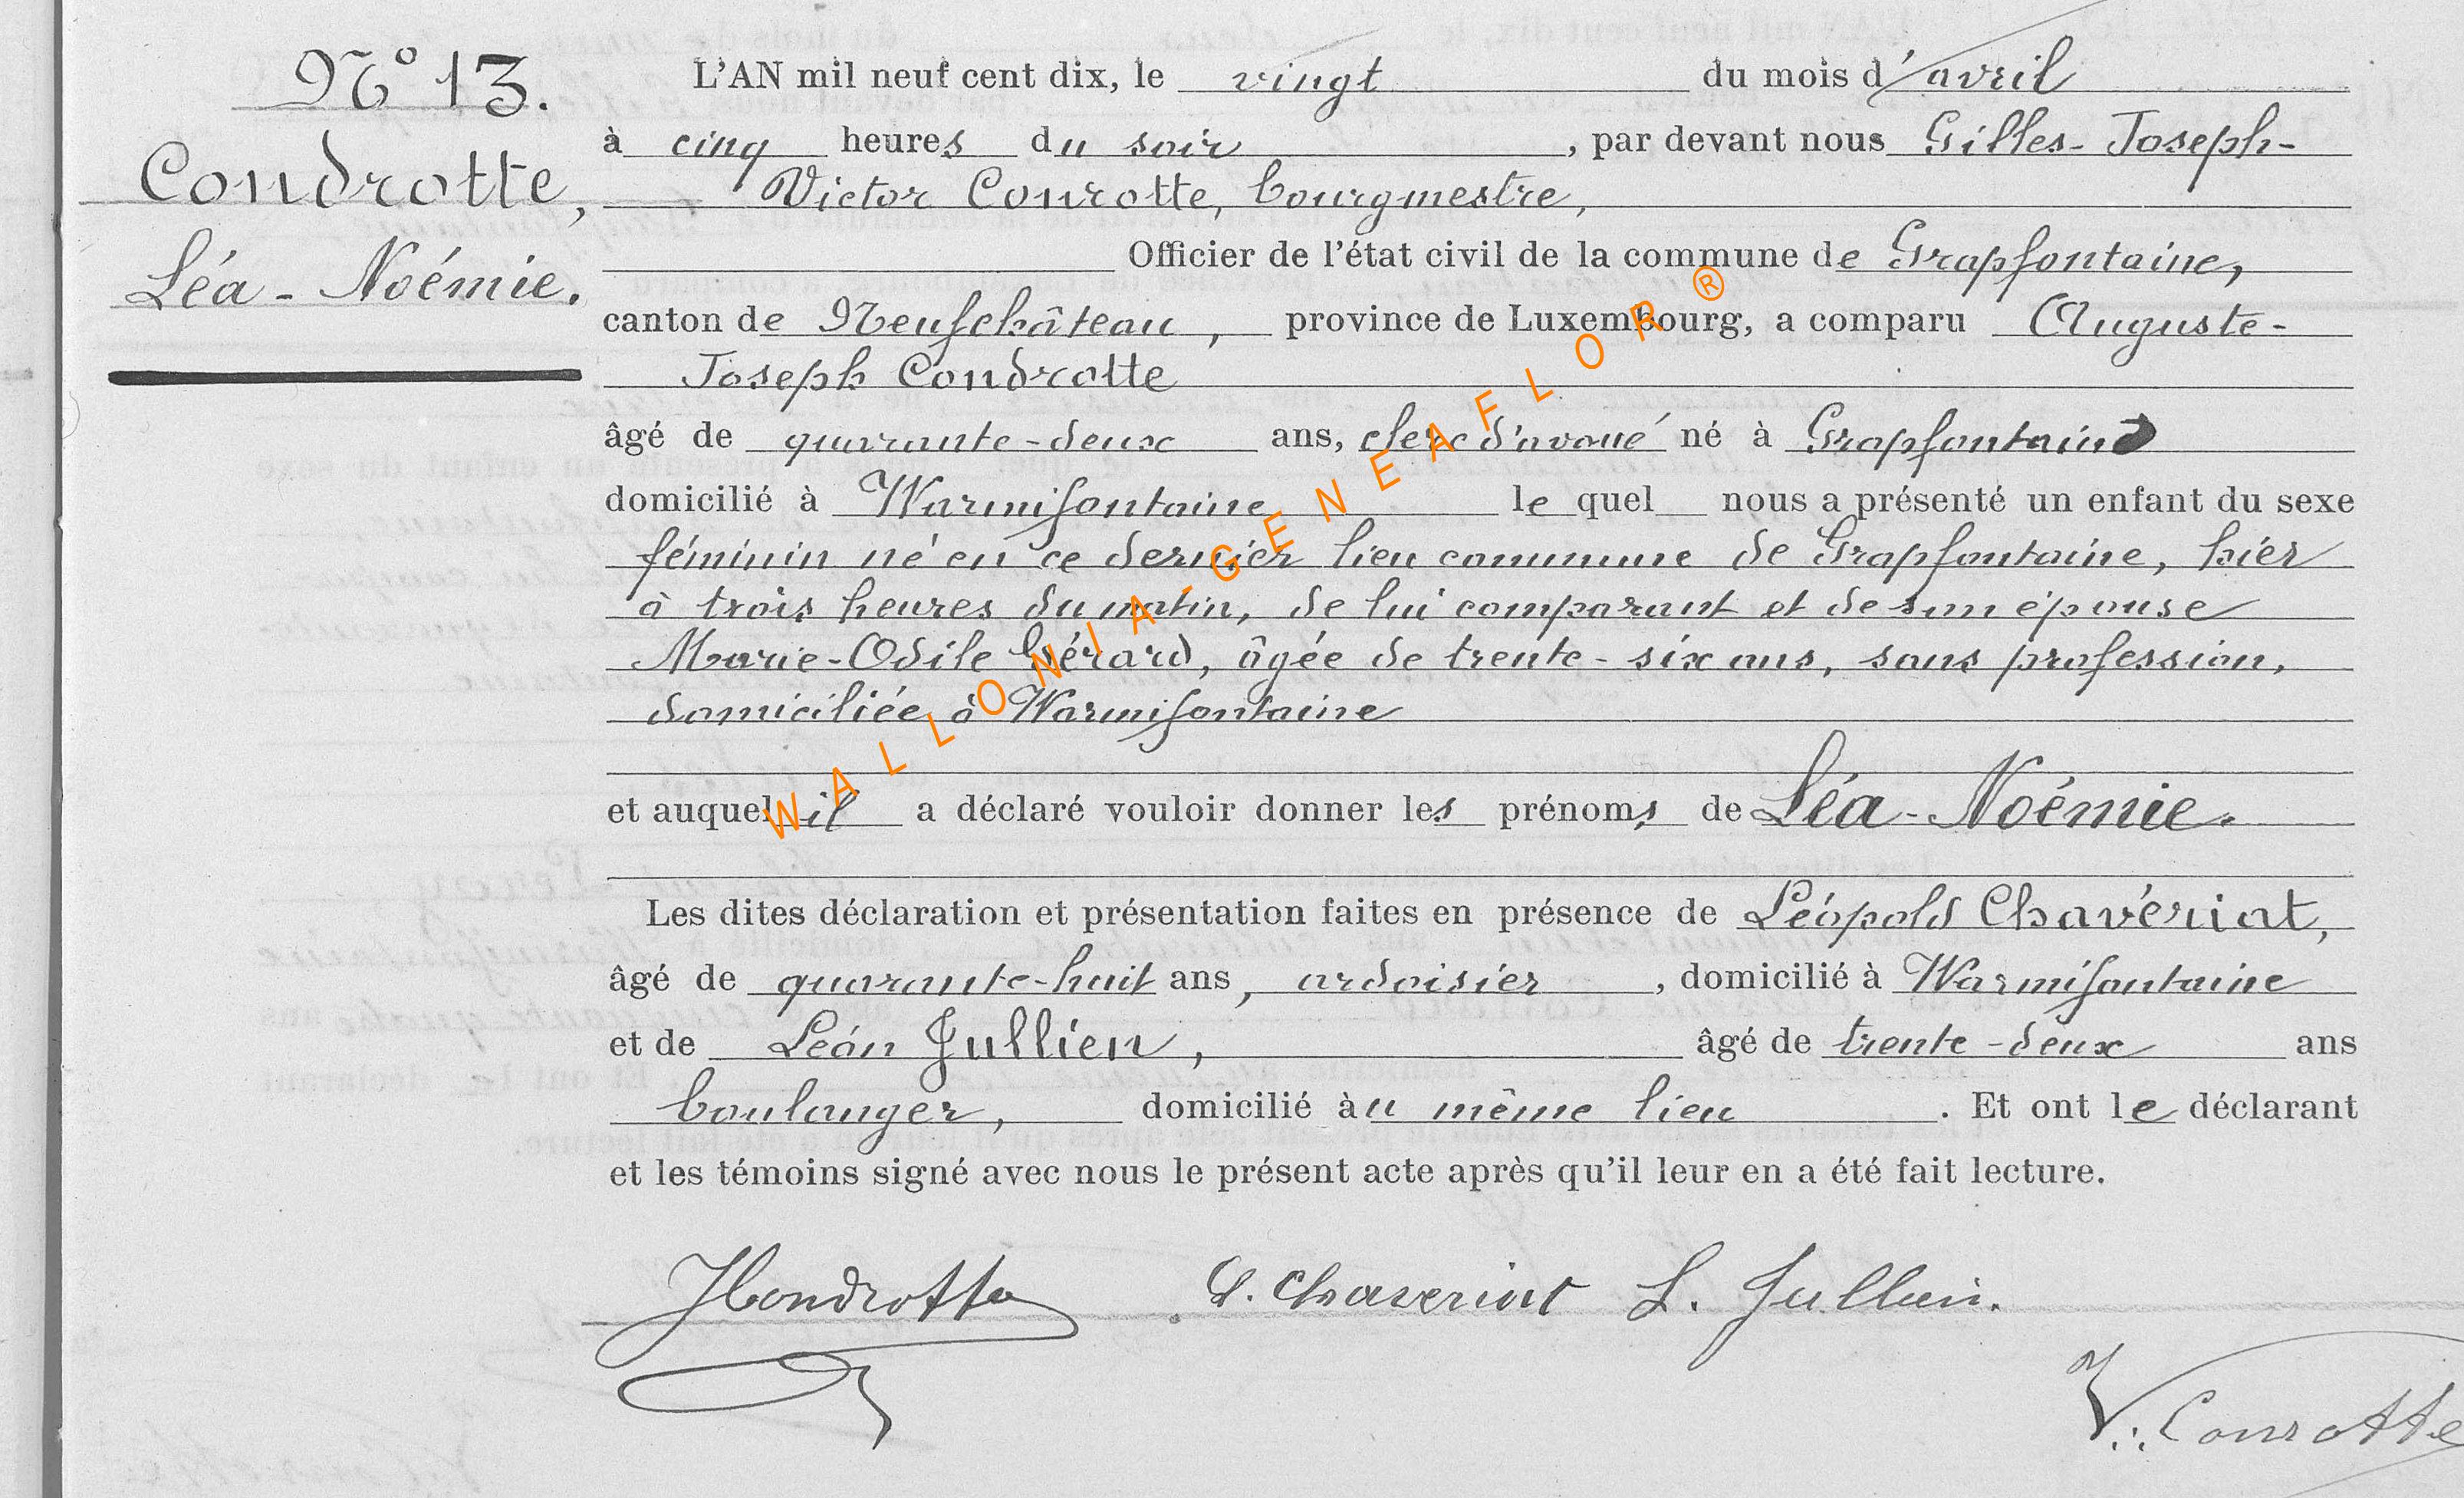 N° 13.
Condrotte,
Léa-Noémie.
L'AN mil neuf cent dix, le vingt du mois d'avril
à cinq heures du soir, par devant nous Gilles-Joseph-
Victor Conrotte, bourgmestre,
Officier de l'état civil de la commune de Grapfontaine,
canton de Neufchâteau, province de Luxembourg, a comparu Auguste-
Joseph Condrotte
âgé de quarante-deux ans, clerc d'avoué né à Grapfontaine
domicilié à Warmifontaine le quel nous a présenté un enfant du sexe
féminin né en ce dernier lieu commune de Grapfontaine, hier
à trois heures du matin, de lui comparant et de son épouse
Marie-Odile Gérard, âgée de trente-six ans, sans profession,
domiciliée à Warmifontaine
et auquel il a déclaré vouloir donner les prénoms de Léa-Noémie.
Les dites déclaration et présentation faites en présence de Léopold Chavériat,
âgé de quarante-huit ans, ardoisier, domicilié à Warmifontaine
et de Léon Jullien, âgé de trente-deux ans
boulanger, domicilié àu même lieu. Et ont le déclarant
et les témoins signé avec nous le présent acte après qu'il leur en a été fait lecture.
Condrotte L. Chaveriat L. Jullien.
V. Conrotte
WALLONIA-GENEAFLOR ®